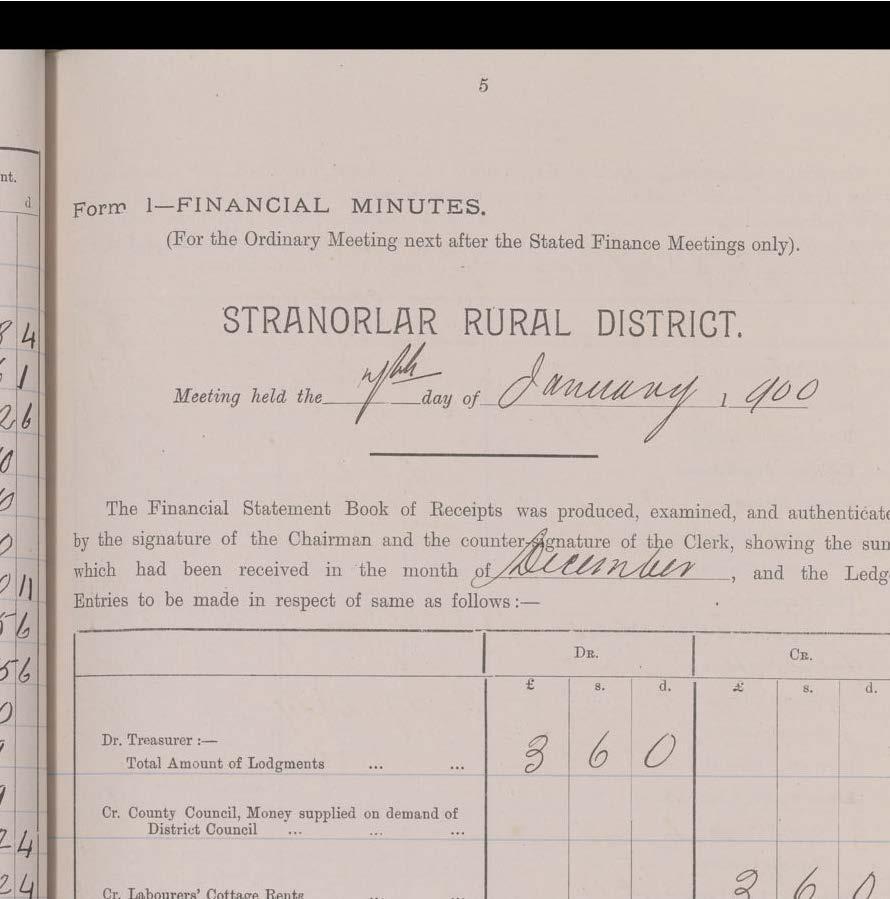 5
nt.
d
Form 1—FINANCIAL MINUTES.
(For the Ordinary Meeting next after the Stated Finance Meetings only).
STRANORLAR RURAL DISTRICT.
Meeting held the day of January, 1900
The Financial Statement Book of Receipts was produced, examined, and authenticate
by the signature of the Chairman and the counter-signature of the Clerk, showing the sum
which had been received in the month of December, and the Ledg
Entries to be made in respect of same as follows:—
DR. CR.
£ s. d. £ s. d.
Dr. Treasurer :—
Total Amount of Lodgments ... ... 3 6 0
Cr. County Council, Money supplied on demand of
District Council ... ... ...
Cr. Labourers' Cottage Rents ... ... 3 6 0